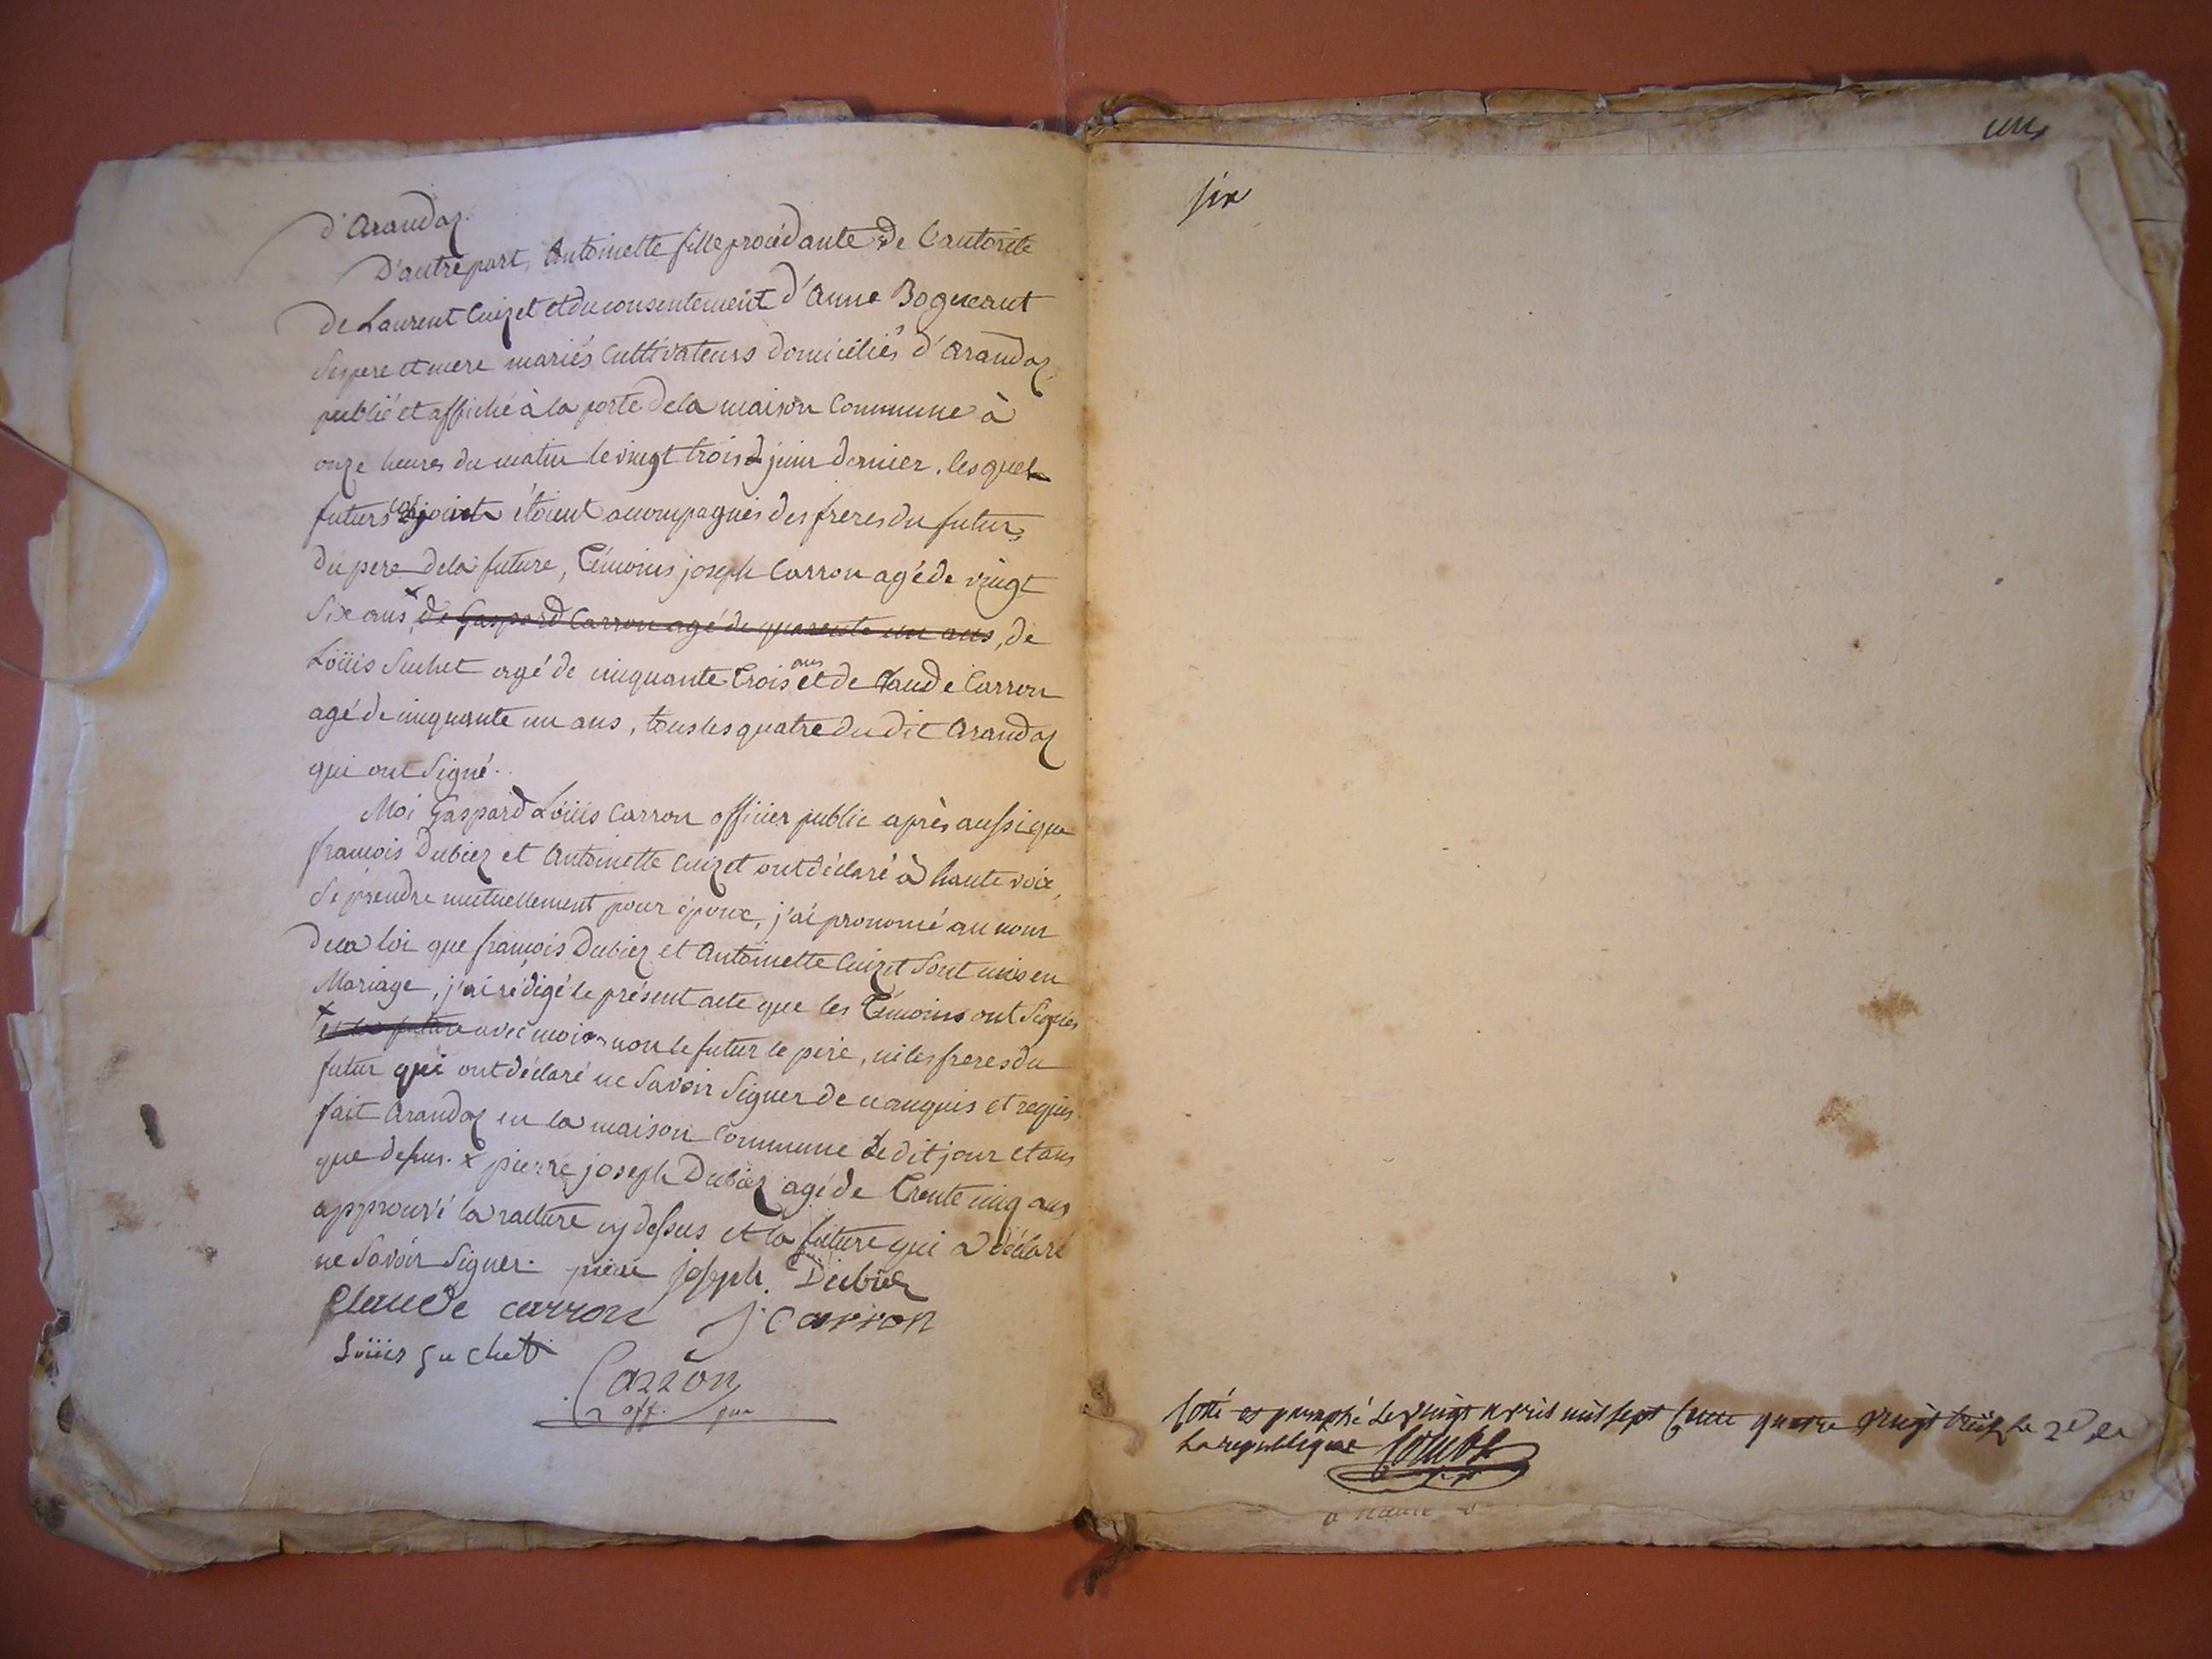 d'Arandaz.
D'autre part, Antoinette fille procédante de l'autorité
de Laurent Cuizet et du consentement d'Anne Bogneaut
ses pere et mere mariés cultivateurs domiciliés d'Arandaz
publié et affiché à la porte de la maison commune à
onze heures du matin le vingt trois juin dernier. lesquels
futurs conjoints étoient accompagnés des freres du futur,
du pere de la future, témoins joseph Carron agé de vingt
six ans, x de Gaspard Carron agé de quarente un ans, de
Loüis Suchet agé de cinquante trois ans et de Claude Carron
agé de cinquante un ans, tous les quatre du dit Arandaz
qui ont signé.
Moi Gaspard Loüis Carron officier public après aussi que
françois Dubiez et Antoinette Cuizet ont déclaré à haute voix,
se prendre mutuellement pour époux, j'ai prononcé au nom
de la loi que françois Dubiez et Antoinette Cuizet sont unis en
Mariage, j'ai rédigé le présent acte que les témoins ont signés
x et la future avec moi non le futur le pere, ni les freres du
futur qui ont déclaré ne savoir signer de ce enquis et requis.
fait Arandaz en la maison commune le dit jour et ans
que dessus. x pierre joseph Dubiez agé de trente cinq ans
approuvé la rature cy dessus et la future qui a déclaré
ne savoir signer. pierre joseph Dubiez
Claude carron J. carron
Loüis Suchet
Carron
off. pu
six
un
Cotté et paraphé le vingt avril mil sept cent quatre vingt treize le 2e de
la republique